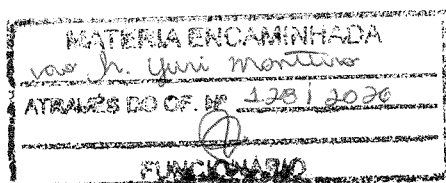 MATERIA ENCAMINHADA
ao Sr. Yuri Monteiro
ATRAVÉS DO OF. Nº 128 / 2020
FUNCIONÁRIO